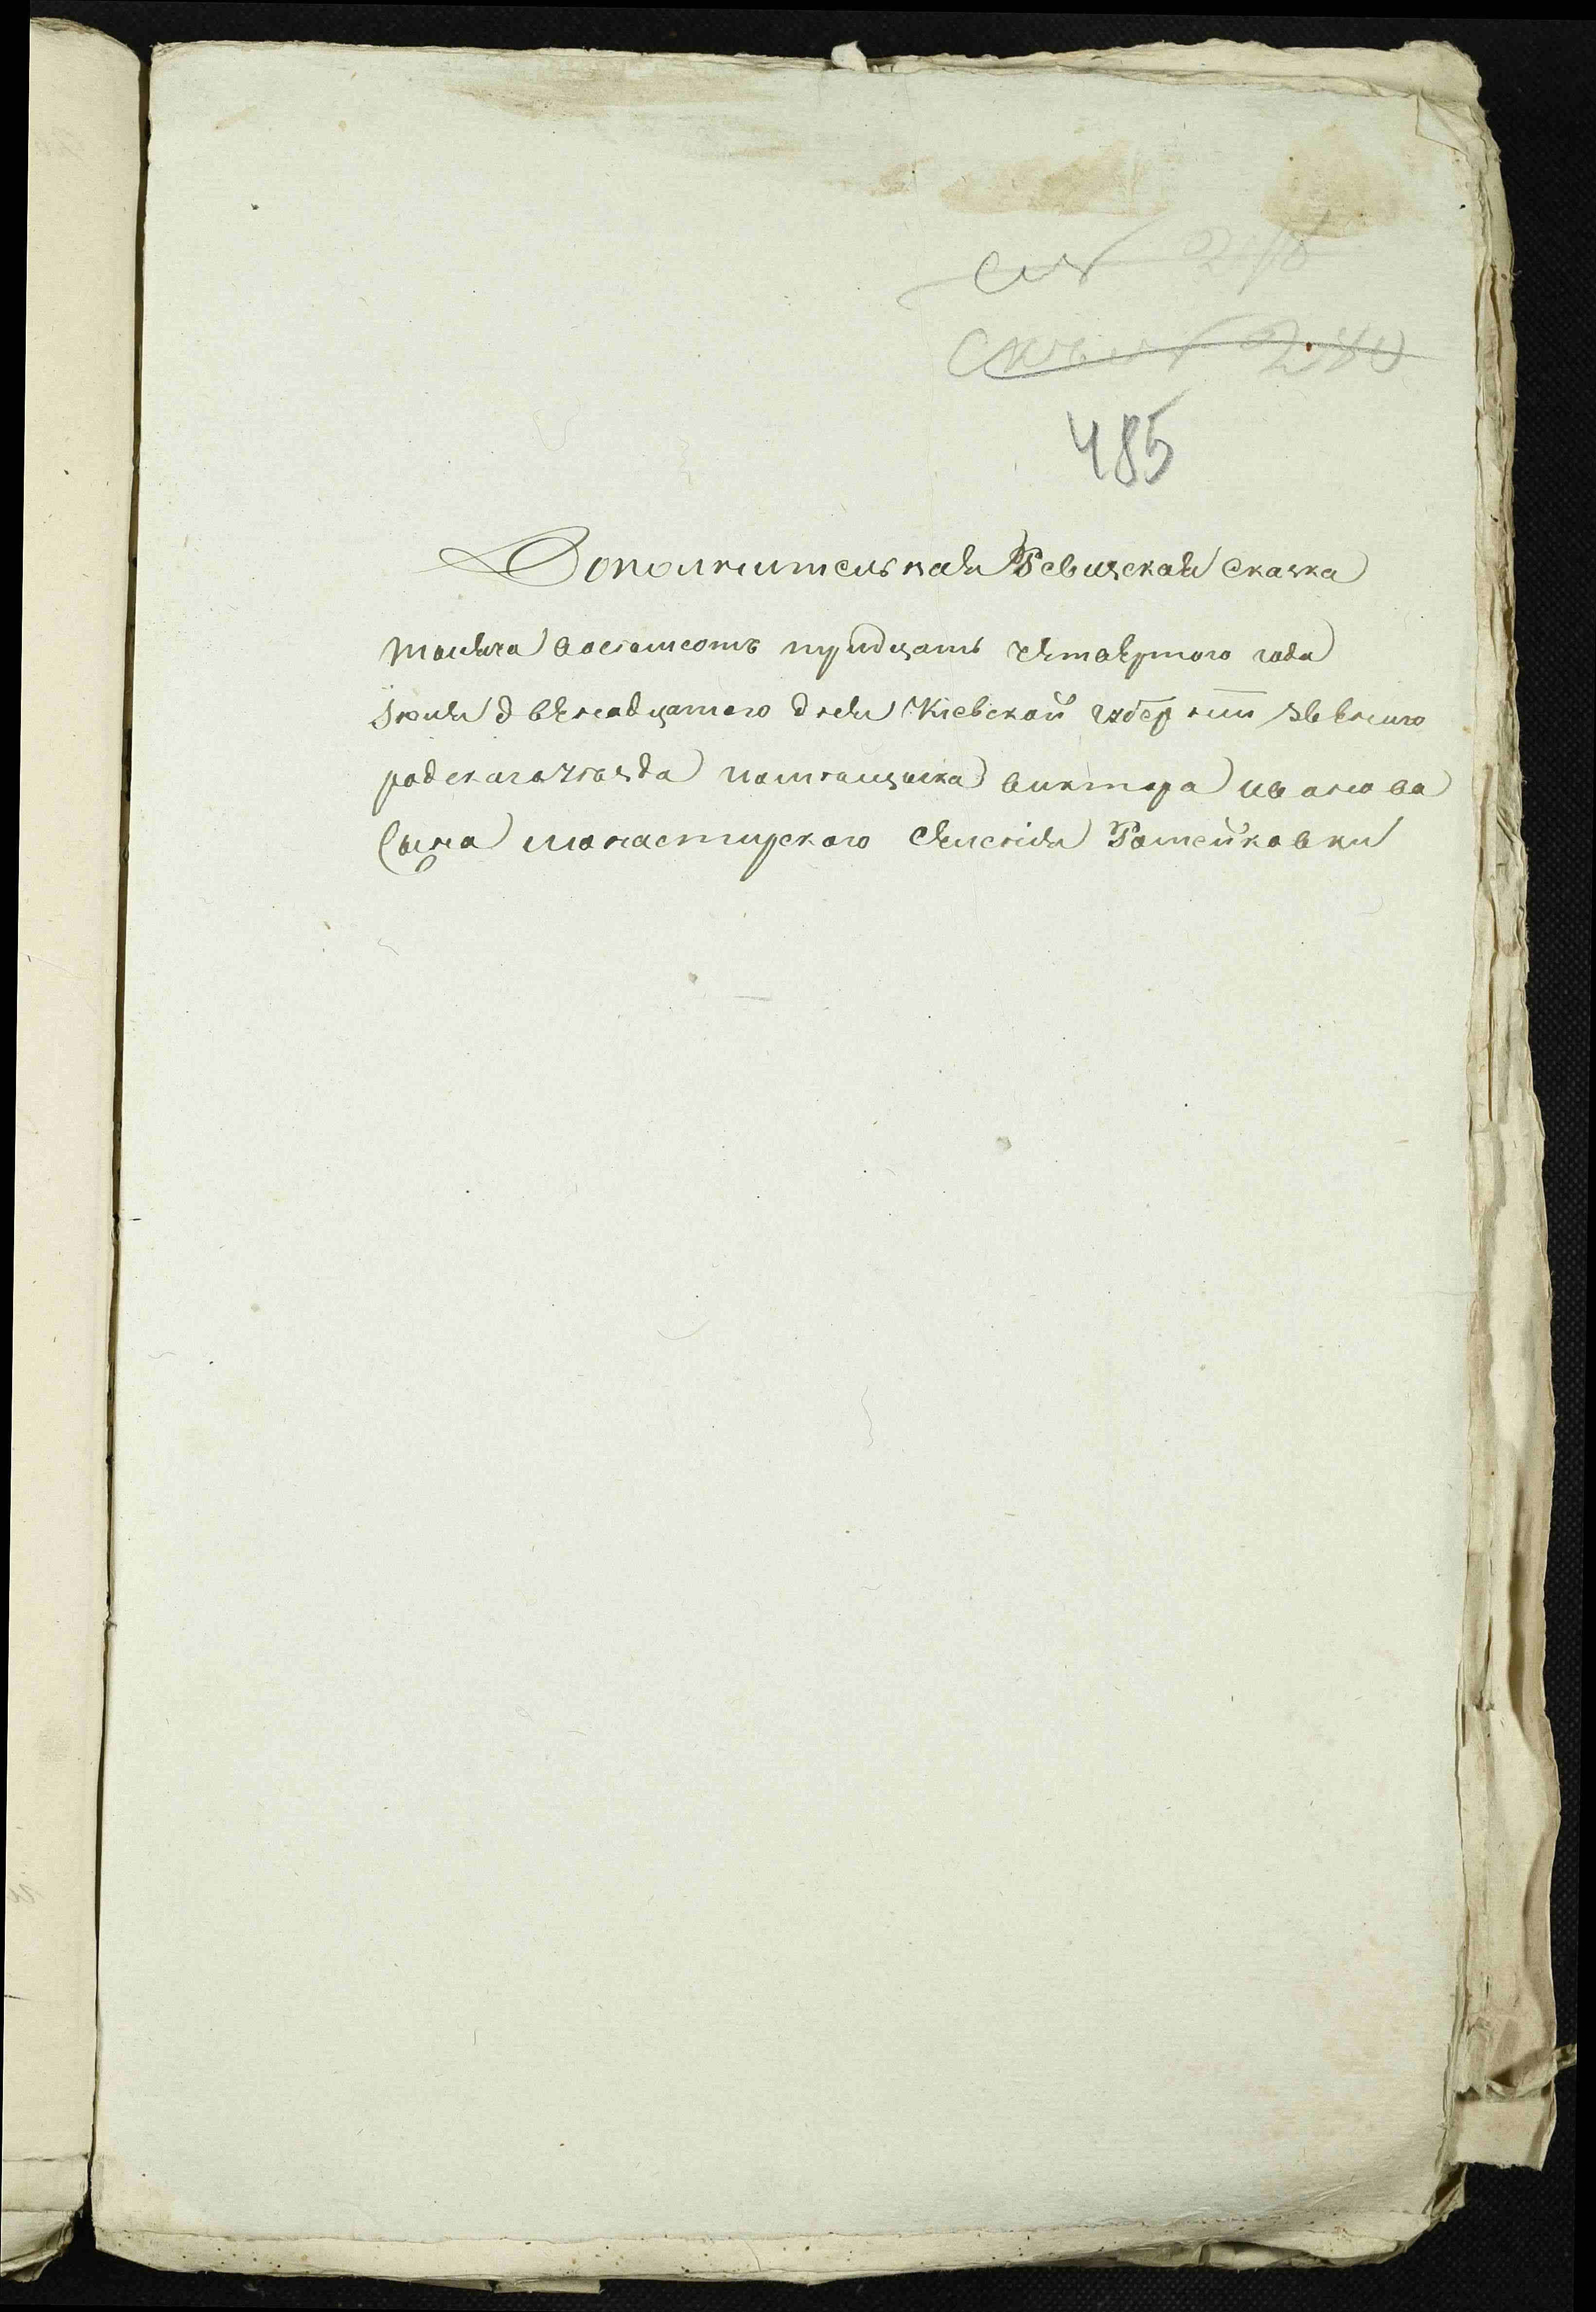 485
Дополнительная Ревизская Сказка
тысяча восемсотъ тридцать четвертого года
Іюля двенадцатого дня Кіевской губерніи Звенино
родскаго уѣзда помѣщика виктора иванова
Сына монастирского Селенія Ротейковки